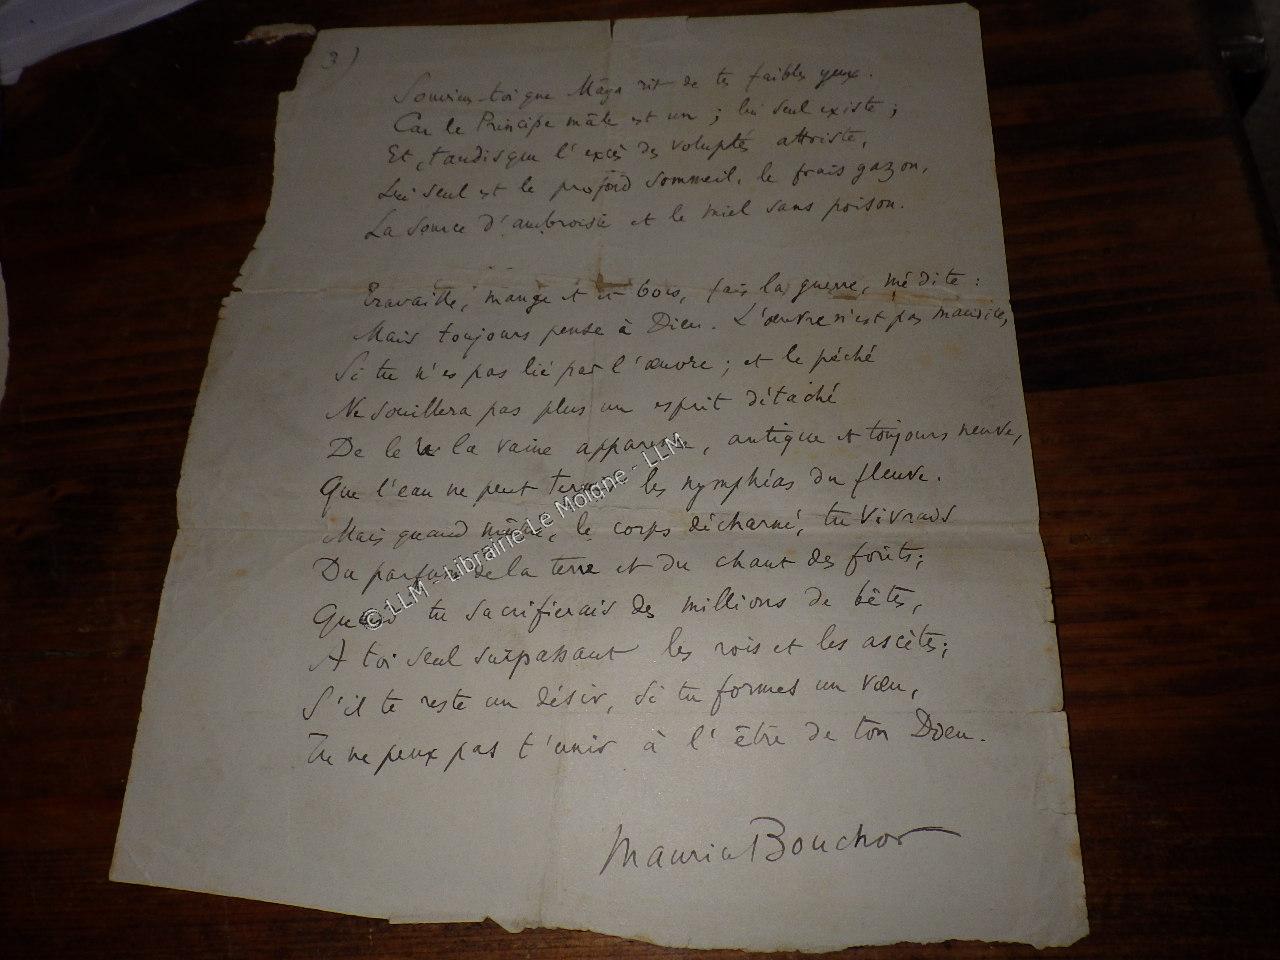 3)
Souviens-toi que Mâya rit de tes faibles yeux.
Car le Principe mâle est un ; lui seul existe ;
Et, tandis que l'excès des voluptés attriste,
Lui seul est le profond sommeil, le frais gazon,
La source d'ambroisie et le miel sans poison.
Travaille, mange et bois, fais la guerre, médite :
Mais toujours pense à Dieu. L'œuvre n'est pas maudite,
Si tu n'es pas lié par l'œuvre ; et le péché
Ne souillera pas plus un esprit détaché
De la vaine apparence, antique et toujours neuve,
Que l'eau ne peut ternir les nymphéas du fleuve.
Mais quand même, le corps décharné, tu vivrais
Du parfum de la terre et du chant des forêts ;
Quand tu sacrifierais des millions de bêtes,
A toi seul surpassant les rois et les ascètes ;
S'il te reste un désir, si tu formes un vœu,
Tu ne peux pas t'unir à l'être de ton Dieu.
Maurice Bouchor
© LLM - Librairie Le Moigne - LLM